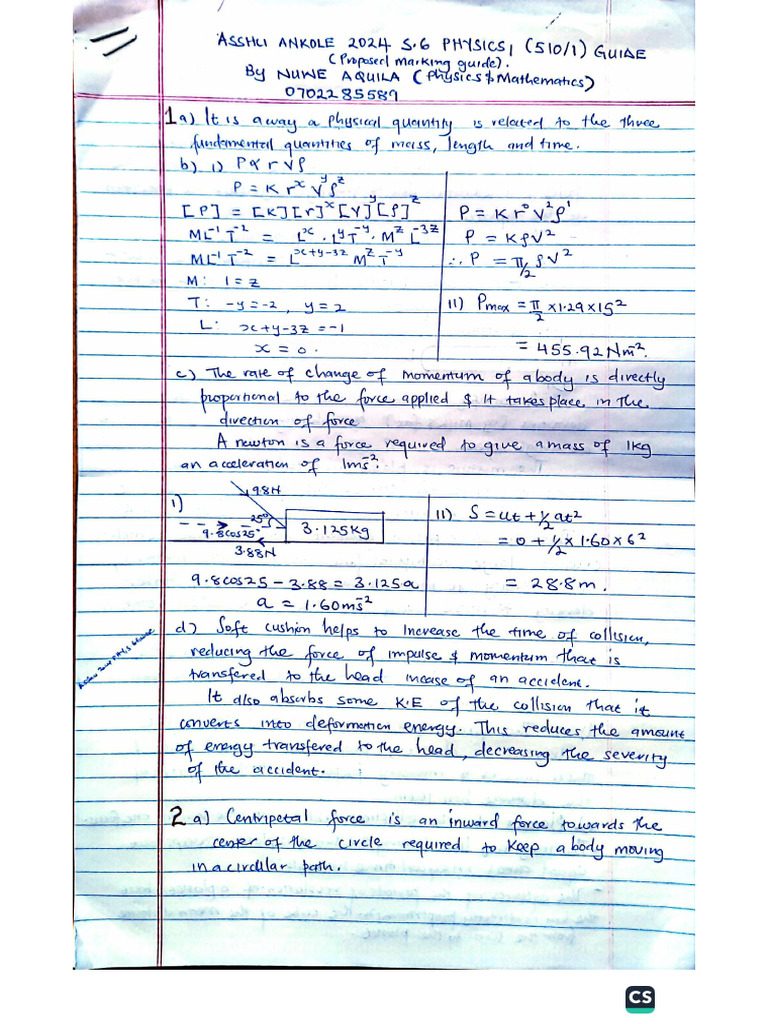 ASSHU ANKOLE 2024 S.6 PHYSICS, (510/1) GUIDE
(Proposed marking guide).
By NUWE AQUILA (Physics & Mathematics)
0702285589
1 a) It is away a physical quantity is related to the three
fundamental quantities of mass, length and time.
b) i) P ∝ r v ρ
P = K r^x v^y ρ^z
[P] = [K][r]^x [V]^y [ρ]^z
ML^-1 T^-2 = L^x . L^y T^-y . M^z L^-3z
ML^-1 T^-2 = L^x+y-3z M^z T^-y
M: 1 = z
T: -y = -2, y = 2
L: x+y-3z = -1
x = 0.
P = K r^0 v^2 ρ^1
P = K ρ v^2
∴ P = π/2 ρ v^2
ii) Pmax = π/2 x 1.29 x 15^2
= 455.92 Nm^-2.
c) The rate of change of momentum of a body is directly
proportional to the force applied & it takes place in the
direction of force
A newton is a force required to give a mass of 1kg
an acceleration of 1ms^-2.
i)
98N
25°
9.8cos25°
3.125kg
3.88N
9.8cos25 - 3.88 = 3.125a
a = 1.60ms^-2
ii) S = ut + 1/2 at^2
= 0 + 1/2 x 1.60 x 6^2
= 28.8m.
d) Soft cushion helps to increase the time of collision,
reducing the force of impulse & momentum that is
transfered to the head incase of an accident.
It also absorbs some K.E of the collision that it
converts into deformation energy. This reduces the amount
of energy transfered to the head, decreasing the severity
of the accident.
2 a) Centripetal force is an inward force towards the
center of the circle required to keep a body moving
in a circular path.
CS